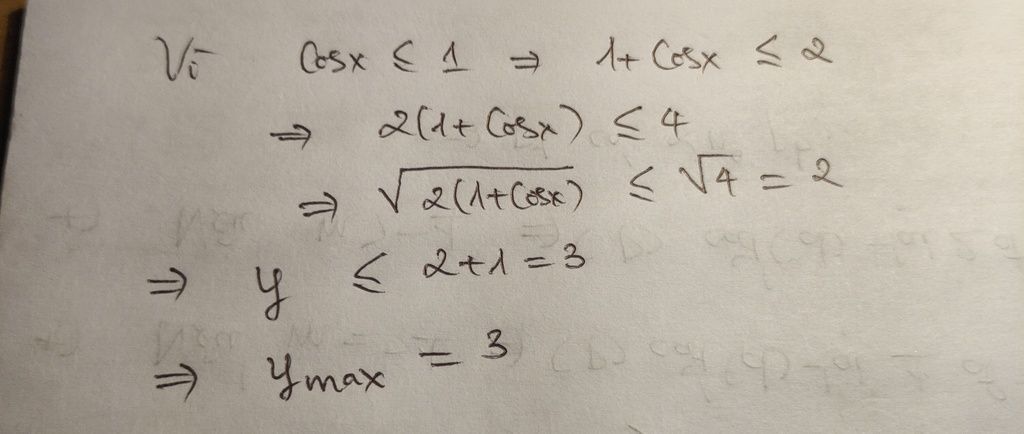 Vì Cosx ≤ 1 ⇒ 1+ Cosx ≤ 2
⇒ 2(1+ Cosx) ≤ 4
⇒ √2(1+Cosx) ≤ √4 = 2
⇒ y ≤ 2+1 = 3
⇒ ymax = 3